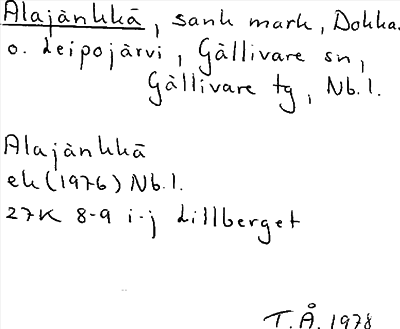 Alajänkkä, sank mark, Dokka.
o. Leipojärvi, Gällivare sn,
Gällivare tg, Nb.l.
Alajänkkä
ek (1976) Nb.l.
27K 8-9 i-j Lillberget
T.Å. 1978